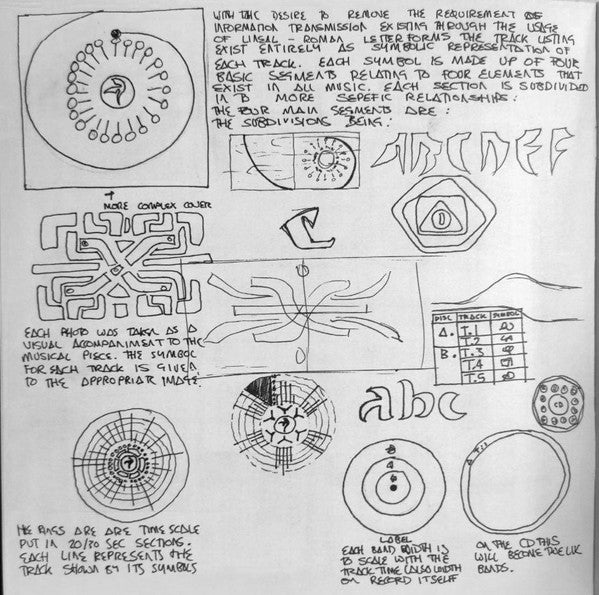 WITH THE DESIRE TO REMOVE THE REQUIREMENT OF
INFORMATION TRANSMISSION EXISTING THROUGH THE USAGE
OF LINEAL - ROMAN LETTER FORMS THE TRACK LISTING
EXIST ENTIRELY AS SYMBOLIC REPRESENTATION OF
EACH TRACK. EACH SYMBOL IS MADE UP OF FOUR
BASIC SEGMENTS RELATING TO FOUR ELEMENTS THAT
EXIST IN ALL MUSIC. EACH SECTION IS SUBDIVIDED
IN TO MORE SEPEFIC RELATIONSHIPS:
THE FOUR MAIN SEGMENTS ARE:
THE SUBDIVISIONS BEING:
ABCDEF
MORE COMPLEX COVER
EACH PHOTO WAS TAKEN AS A
VISUAL ACCOMPANIMENT TO THE
MUSICAL PIECE. THE SYMBOL
FOR EACH TRACK IS GIVEN
TO THE APPROPRIATE IMAGE.
DISC TRACK SYMBOL
A. T.1
T.2
B. T.3
T.4
T.5
abc
CD
THE RINGS ARE ARE TIME SCALE
PUT IN 20/30 SEC SECTIONS.
EACH LINE REPRESENTS THE
TRACK SHOWN BY ITS SYMBOLS
LABEL
EACH BAND WIDTH IS
TO SCALE WITH THE
TRACK TIME (ALSO WIDTH
ON RECORD ITSELF
ON THE CD THIS
WILL BECOME
BANDS.